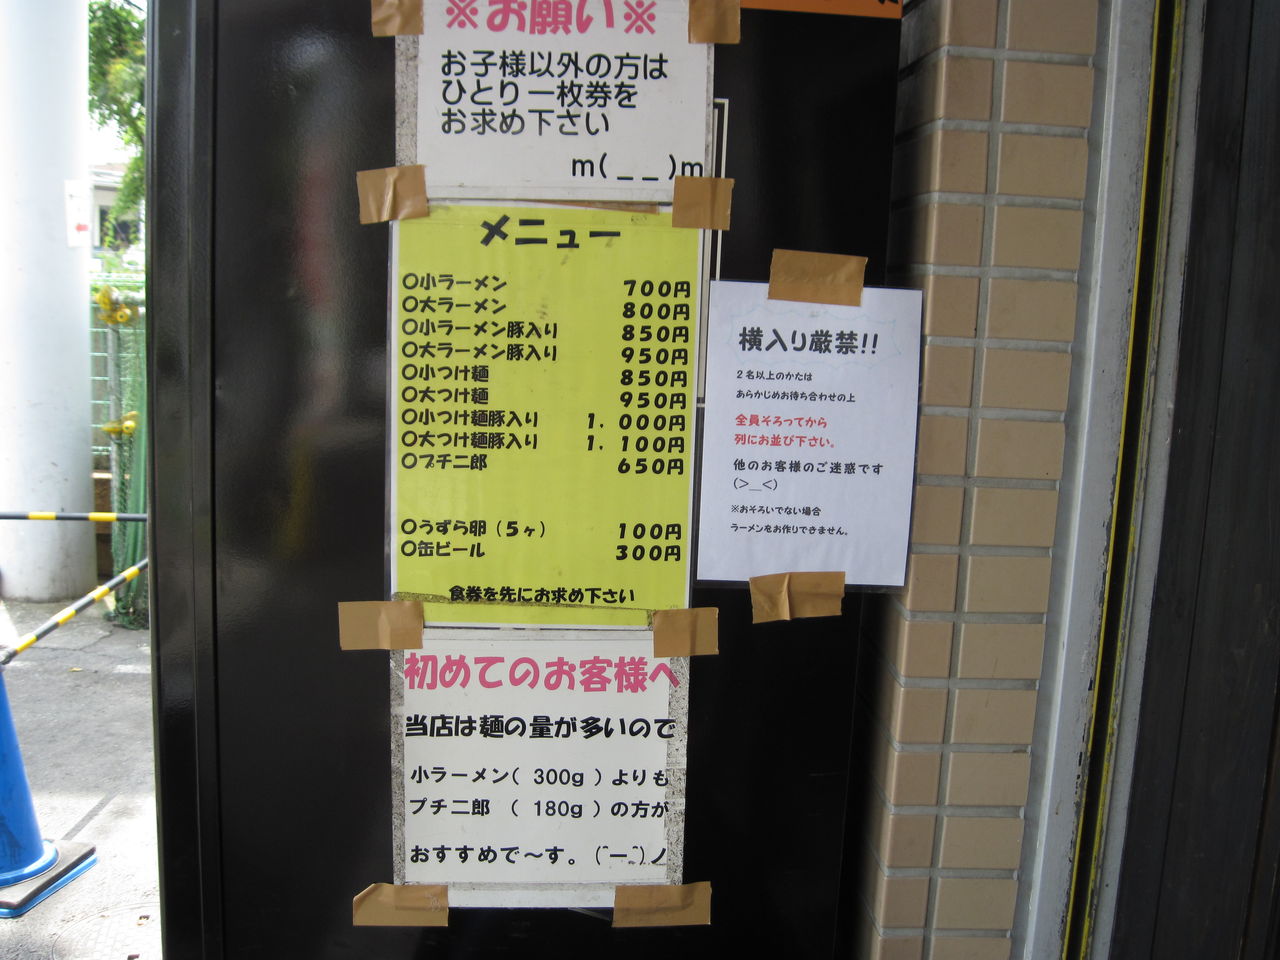 ※お願い※
お子様以外の方は
ひとり一枚券を
お求め下さい
m(__)m
メニュー
〇小ラーメン 700円
〇大ラーメン 800円
〇小ラーメン豚入り 850円
〇大ラーメン豚入り 950円
〇小つけ麺 850円
〇大つけ麺 950円
〇小つけ麺豚入り 1.000円
〇大つけ麺豚入り 1.100円
〇プチ二郎 650円
〇うずら卵（5ヶ） 100円
〇缶ビール 300円
食券を先にお求め下さい
初めてのお客様へ
当店は麺の量が多いので
小ラーメン( 300g )よりも
プチ二郎 ( 180g )の方が
おすすめで～す。(^ー^)ノ
横入り厳禁!!
2名以上のかたは
あらかじめお待ち合わせの上
全員そろってから
列にお並び下さい。
他のお客様のご迷惑です
(>__<)
※おそろいでない場合
ラーメンをお作りできません。